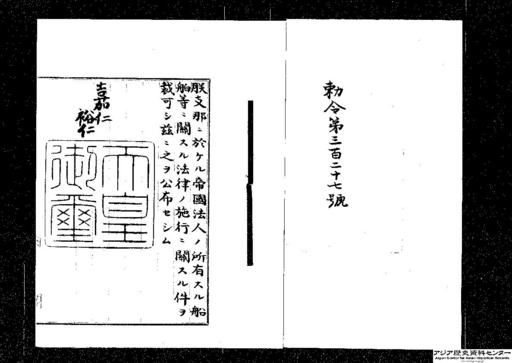 勅令第三百二十七號
朕支那ニ於ケル帝國法人ノ所有スル船
舶等ニ關スル法律ノ施行ニ關スル件ヲ
裁可シ茲ニ之ヲ公布セシム
嘉仁
裕仁
天皇
御璽
アジア歴史資料センター
Japan Center for Asian Historical Records